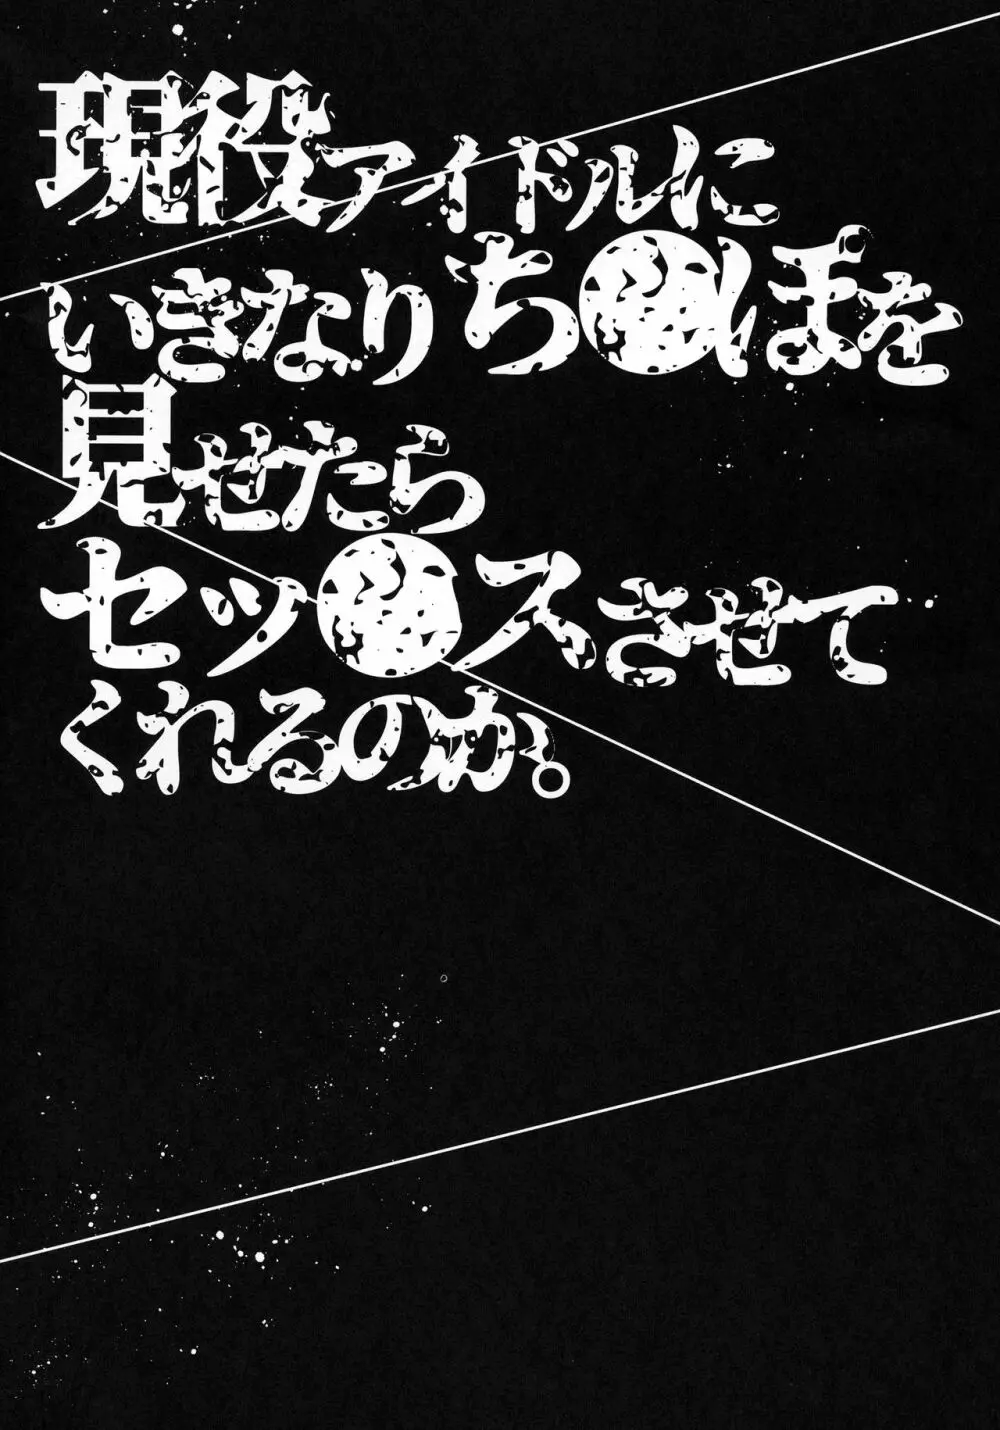 現役アイドルに
いきなりち●んぽを
見せたら
セッ●スさせて
くれるのか。